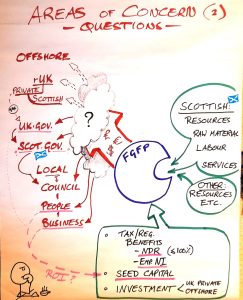 AREAS OF CONCERN 2
- QUESTIONS -
OFFSHORE
rUK
PRIVATE
SCOTTISH
UK.GOV.
SCOT.GOV.
LOCAL
COUNCIL
PEOPLE
BUSINESS
ROI?
?
£
€
FGFP
SCOTTISH:
RESOURCES
RAW MATERIAL
LABOUR
SERVICES
OTHER:
RESOURCES
ETC.
• TAX/REG.
BENEFITS
- NDR
- EMP NI
• SEED CAPITAL
• INVESTMENT
UK PRIVATE
OFFSHORE